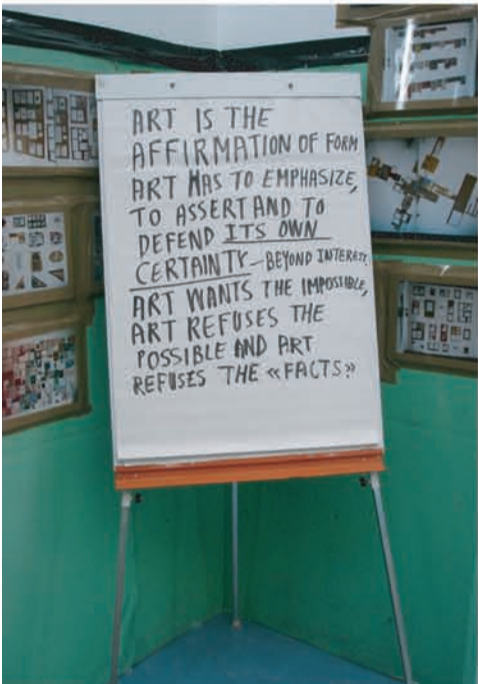 ART IS THE
AFFIRMATION OF FORM
ART HAS TO EMPHASIZE,
TO ASSERT AND TO
DEFEND ITS OWN
CERTAINTY – BEYOND INTEREST.
ART WANTS THE IMPOSSIBLE,
ART REFUSES THE
POSSIBLE AND ART
REFUSES THE «FACTS»